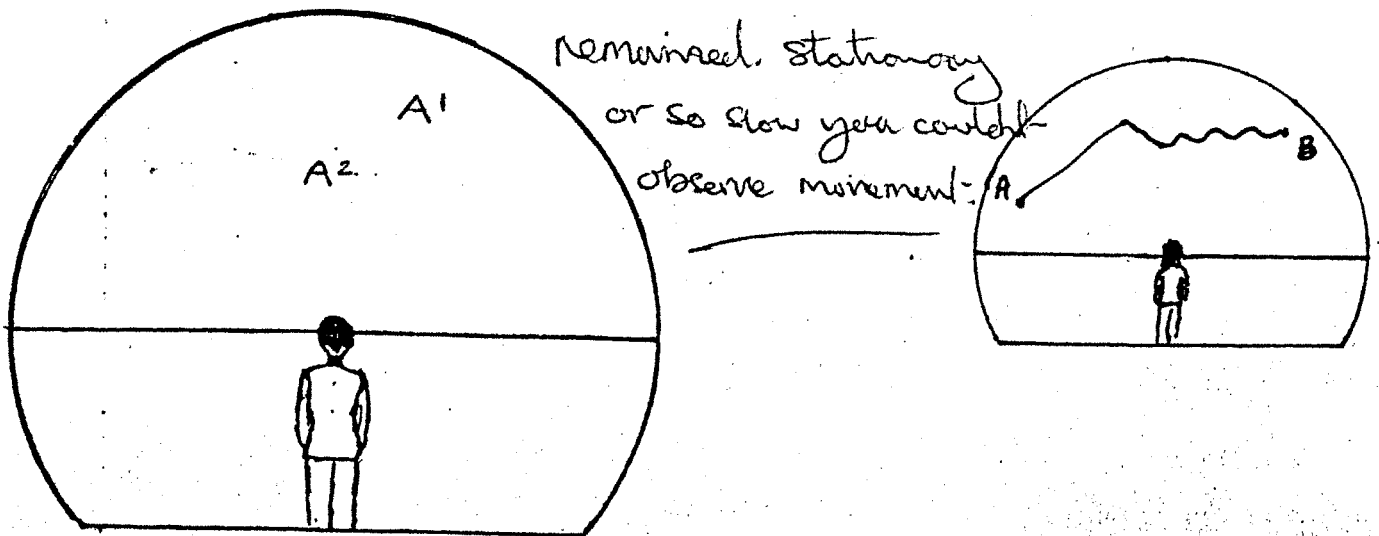 A¹
A²
remained. stationary
or so slow you couldn't
observe movement:
A
B